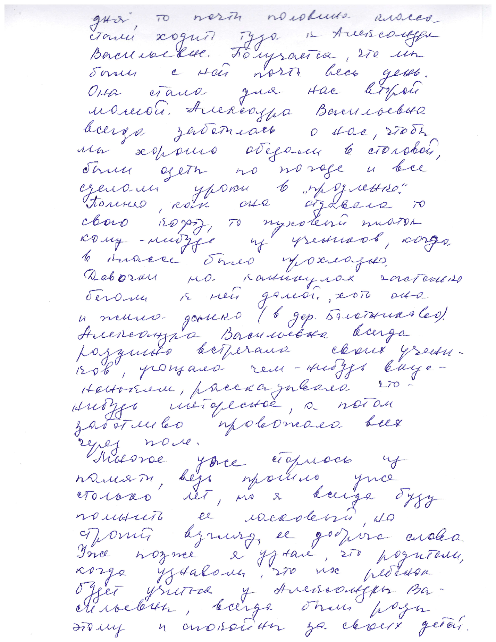 дня, то почти половина класса
стали ходить туда к Александре
Васильевне. Получается, что мы
были с ней почти весь день.
Она стала для нас второй
мамой. Александра Васильевна
всегда заботилась о нас, чтобы
мы хорошо обедали в столовой,
были одеты по погоде и все
сделали уроки в "продленке".
Помню, как она отдавала то
свою кофту, то пуховый платок
кому-нибудь из учеников, когда
в классе было прохладно.
Девочки на каникулах частенько
бегали к ней домой, хоть она
и жила далеко (в дер.
Александра Васильевна всегда
радушно встречала своих учени-
ков, угощала чем-нибудь вкус-
неньким, рассказывала что-
нибудь интересное, а потом
заботливо провожала всех
через поле.
Многое уже стерлось из
памяти, ведь прошло уже
столько лет, но я всегда буду
помнить ее ласковый, но
строгий взгляд, ее добрые слова.
Уже позже я узнал, что родители,
когда узнавали, что их ребенок
будет учиться у Александры Ва-
сильевны, всегда были рады
этому и спокойны за своих детей.